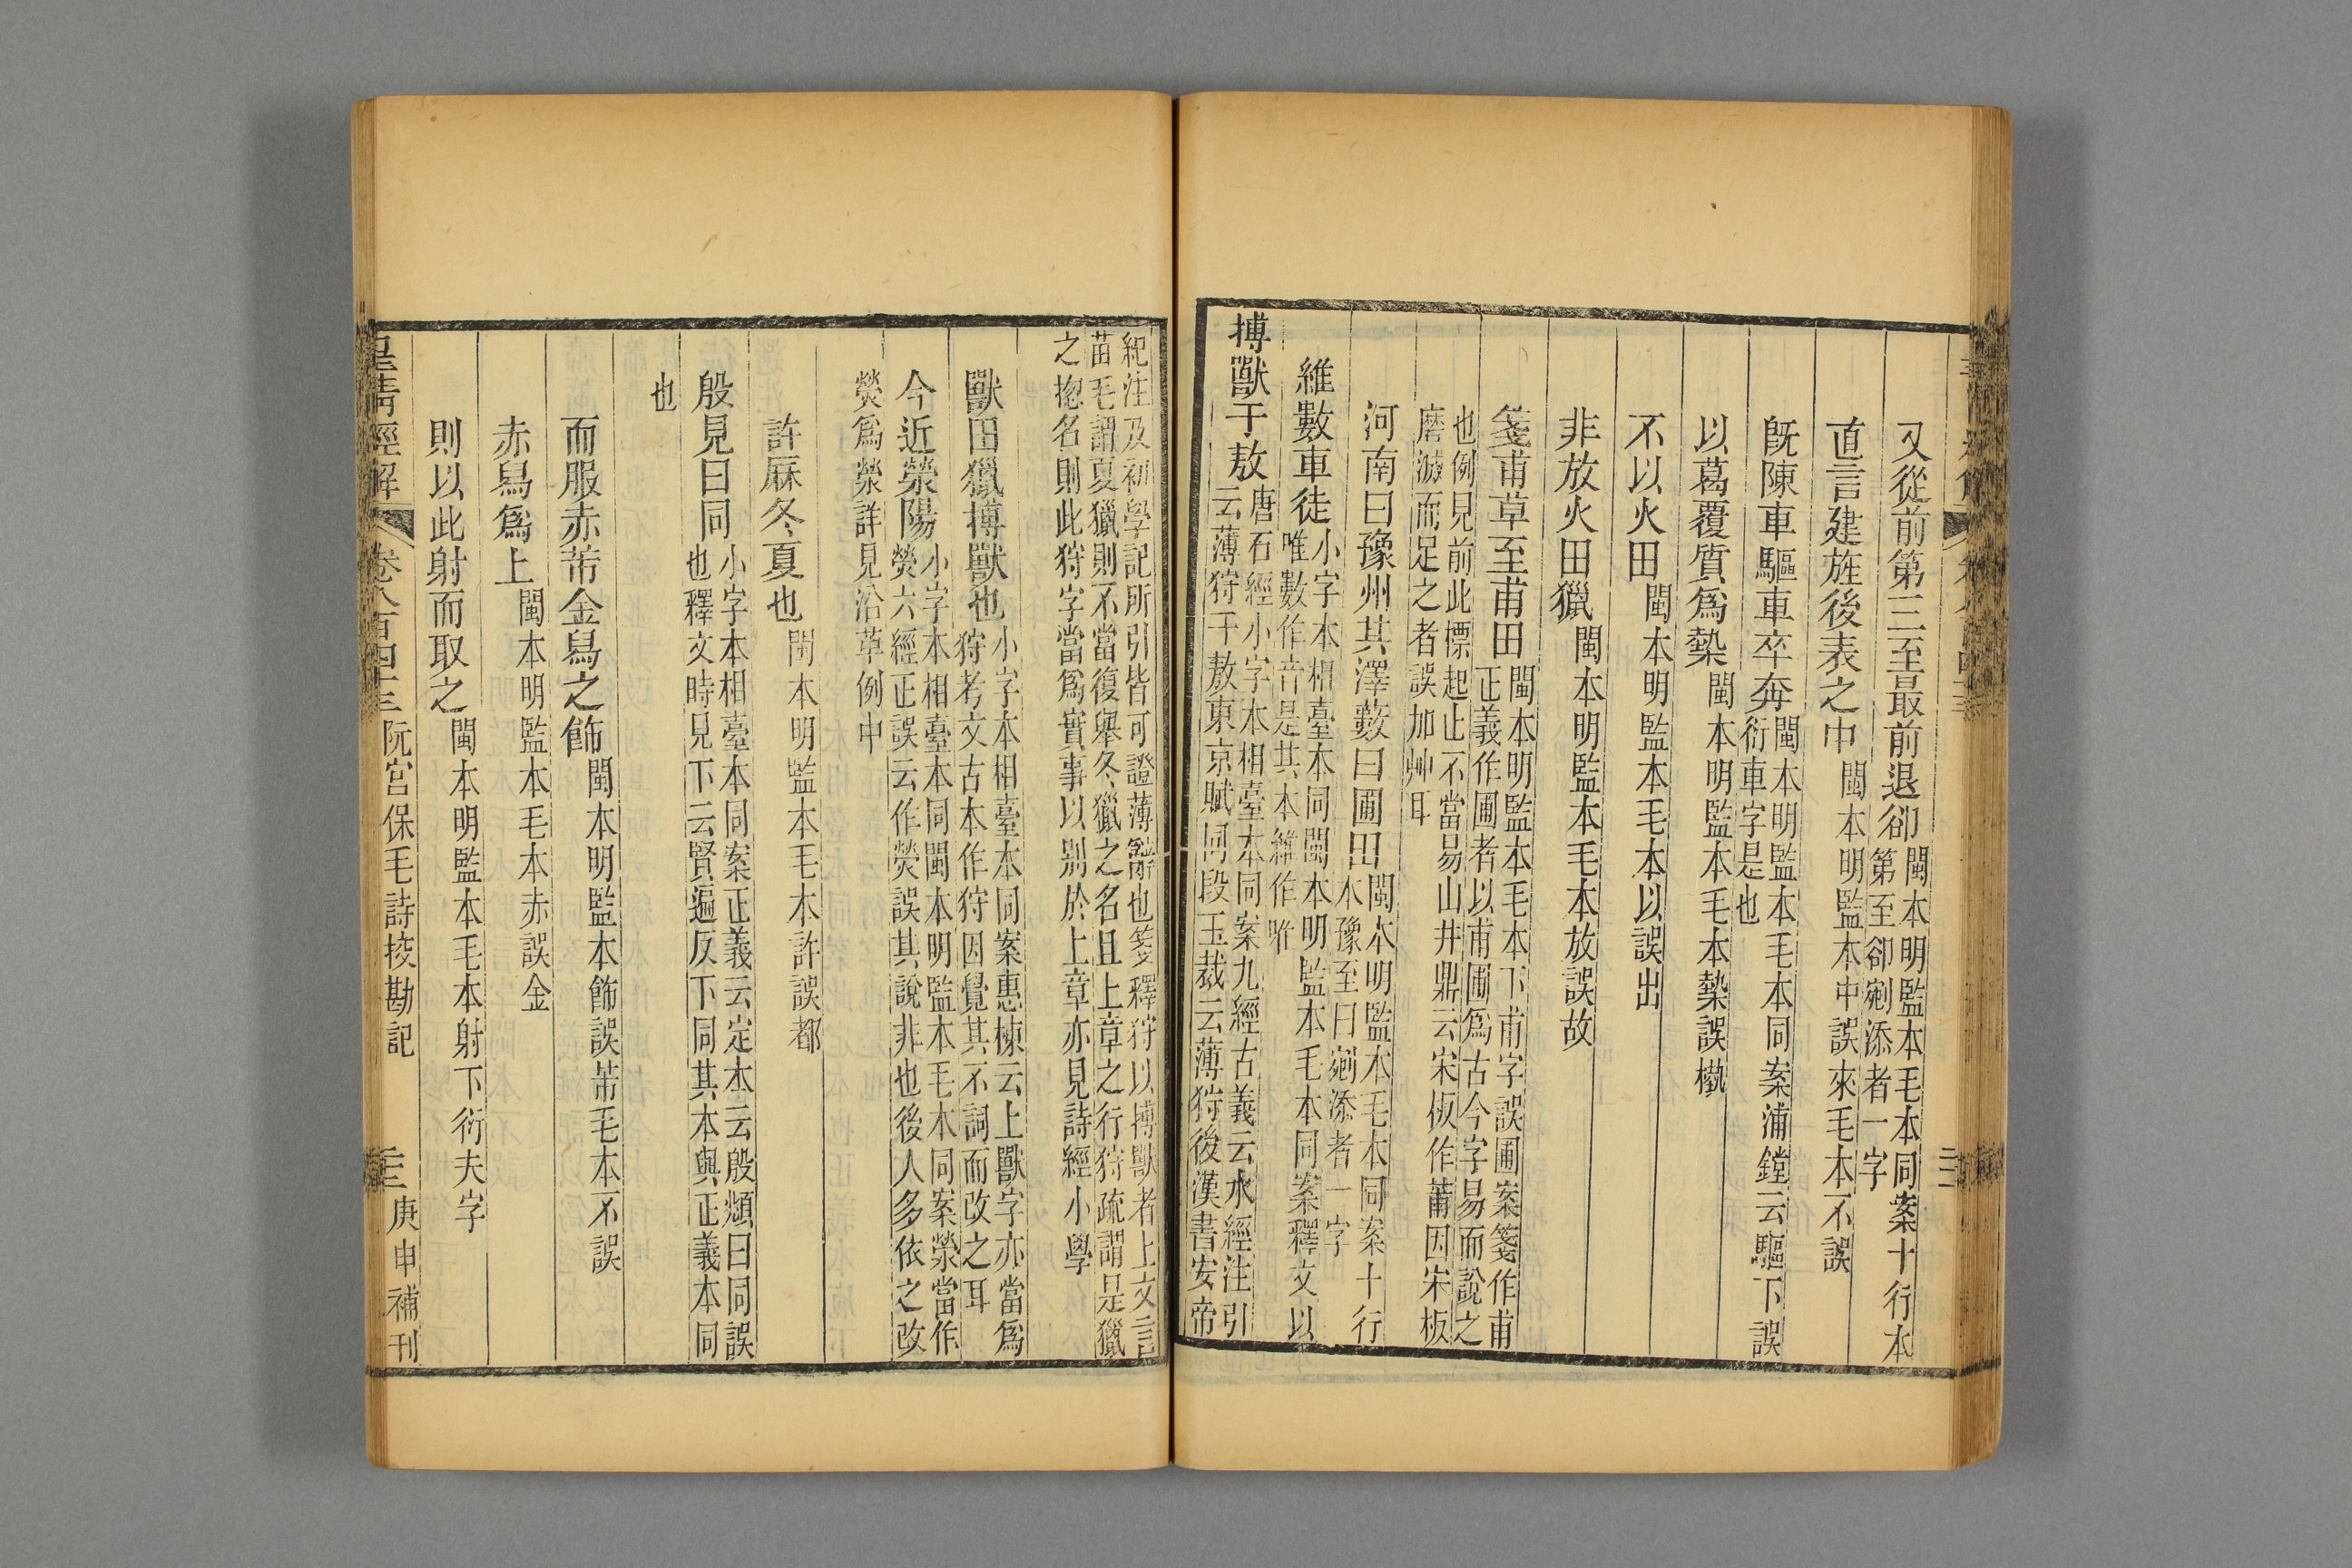 又從前第三至最前退卻閩本明監本毛本同案十行本
第至卻剜添者一字
直言建旌後表之中閩本明監本中誤來毛本不誤
旣陳車驅車卒奔閩本明監本毛本同案浦鏜云驅下誤
衍車字是也
以葛覆質爲槷閩本明監本毛本槷誤樕
不以火田閩本明監本毛本以誤出
非放火田獵閩本明監本毛本放誤故
箋甫草至甫田閩本明監本毛本下甫字誤圃案箋作甫
正義作圃者以甫圃爲古今字易而說之
也例見前此標起止不當易山井鼎云宋板作莆因宋板
磨滅而足之者誤加艸耳
河南曰豫州其澤藪曰圃田閩本明監本毛本同案十行
本豫至曰剜添者一字
維數車徒小字本相臺本同閩本明監本毛本同案釋文以
唯數作音是其本維作唯
搏獸于敖唐石經小字本相臺本同案九經古義云水經注引
云薄狩于敖東京賦同段玉裁云薄狩後漢書安帝
紀注及初學記所引皆可證薄辭也箋釋狩以搏獸者上文言
苗毛謂夏獵則不當復舉冬獵之名且上章之行狩疏謂是獵
之揔名則此狩字當爲實事以别於上章亦見詩經小學
獸田獵搏獸也小字本相臺本同案惠棟云上獸字亦當爲
狩考文古本作狩因覺其不詞而改之耳
今近滎陽小字本相臺本同閩本明監本毛本同案滎當作
熒六經正誤云作熒誤其說非也後人多依之改
熒爲滎詳見沿革例中
許厤冬夏也閩本明監本毛本許誤都
殷見曰同小字本相臺本同案正義云定本云殷頫曰同誤
也釋文時見下云賢遍反下同其本與正義本同
也
而服赤芾金舄之飾閩本明監本飾誤芾毛本不誤
赤舄爲上閩本明監本毛本赤誤金
則以此射而取之閩本明監本毛本射下衍夫字
皇淸經解 卷八百四十三 阮宮保毛詩挍勘記 三 庚申補刊